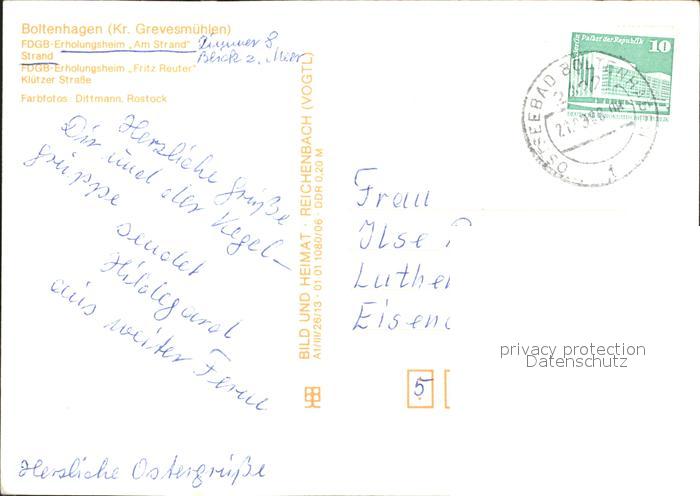 Boltenhagen (Kr. Grevesmühlen)
FDGB-Erholungsheim „Am Strand" Zimmer 8,
Strand Blick z. Meer
FDGB-Erholungsheim „Fritz Reuter"
Klützer Straße
Farbfotos: Dittmann, Rostock
Herzliche Grüße
Dir und der Kegel-
gruppe
sendet
Hildegard
aus weiter Ferne
Herzliche Ostergrüße
BILD UND HEIMAT · REICHENBACH (VOGTL)
A1/III/26/13 · 01 01 1080/06 · DDR 0,20 M
Berlin Palast der Republik
10
OSTSEEBAD BOLTENHAGEN
1
Frau
Ilse
Luther
Eisen
5
privacy protection
Datenschutz